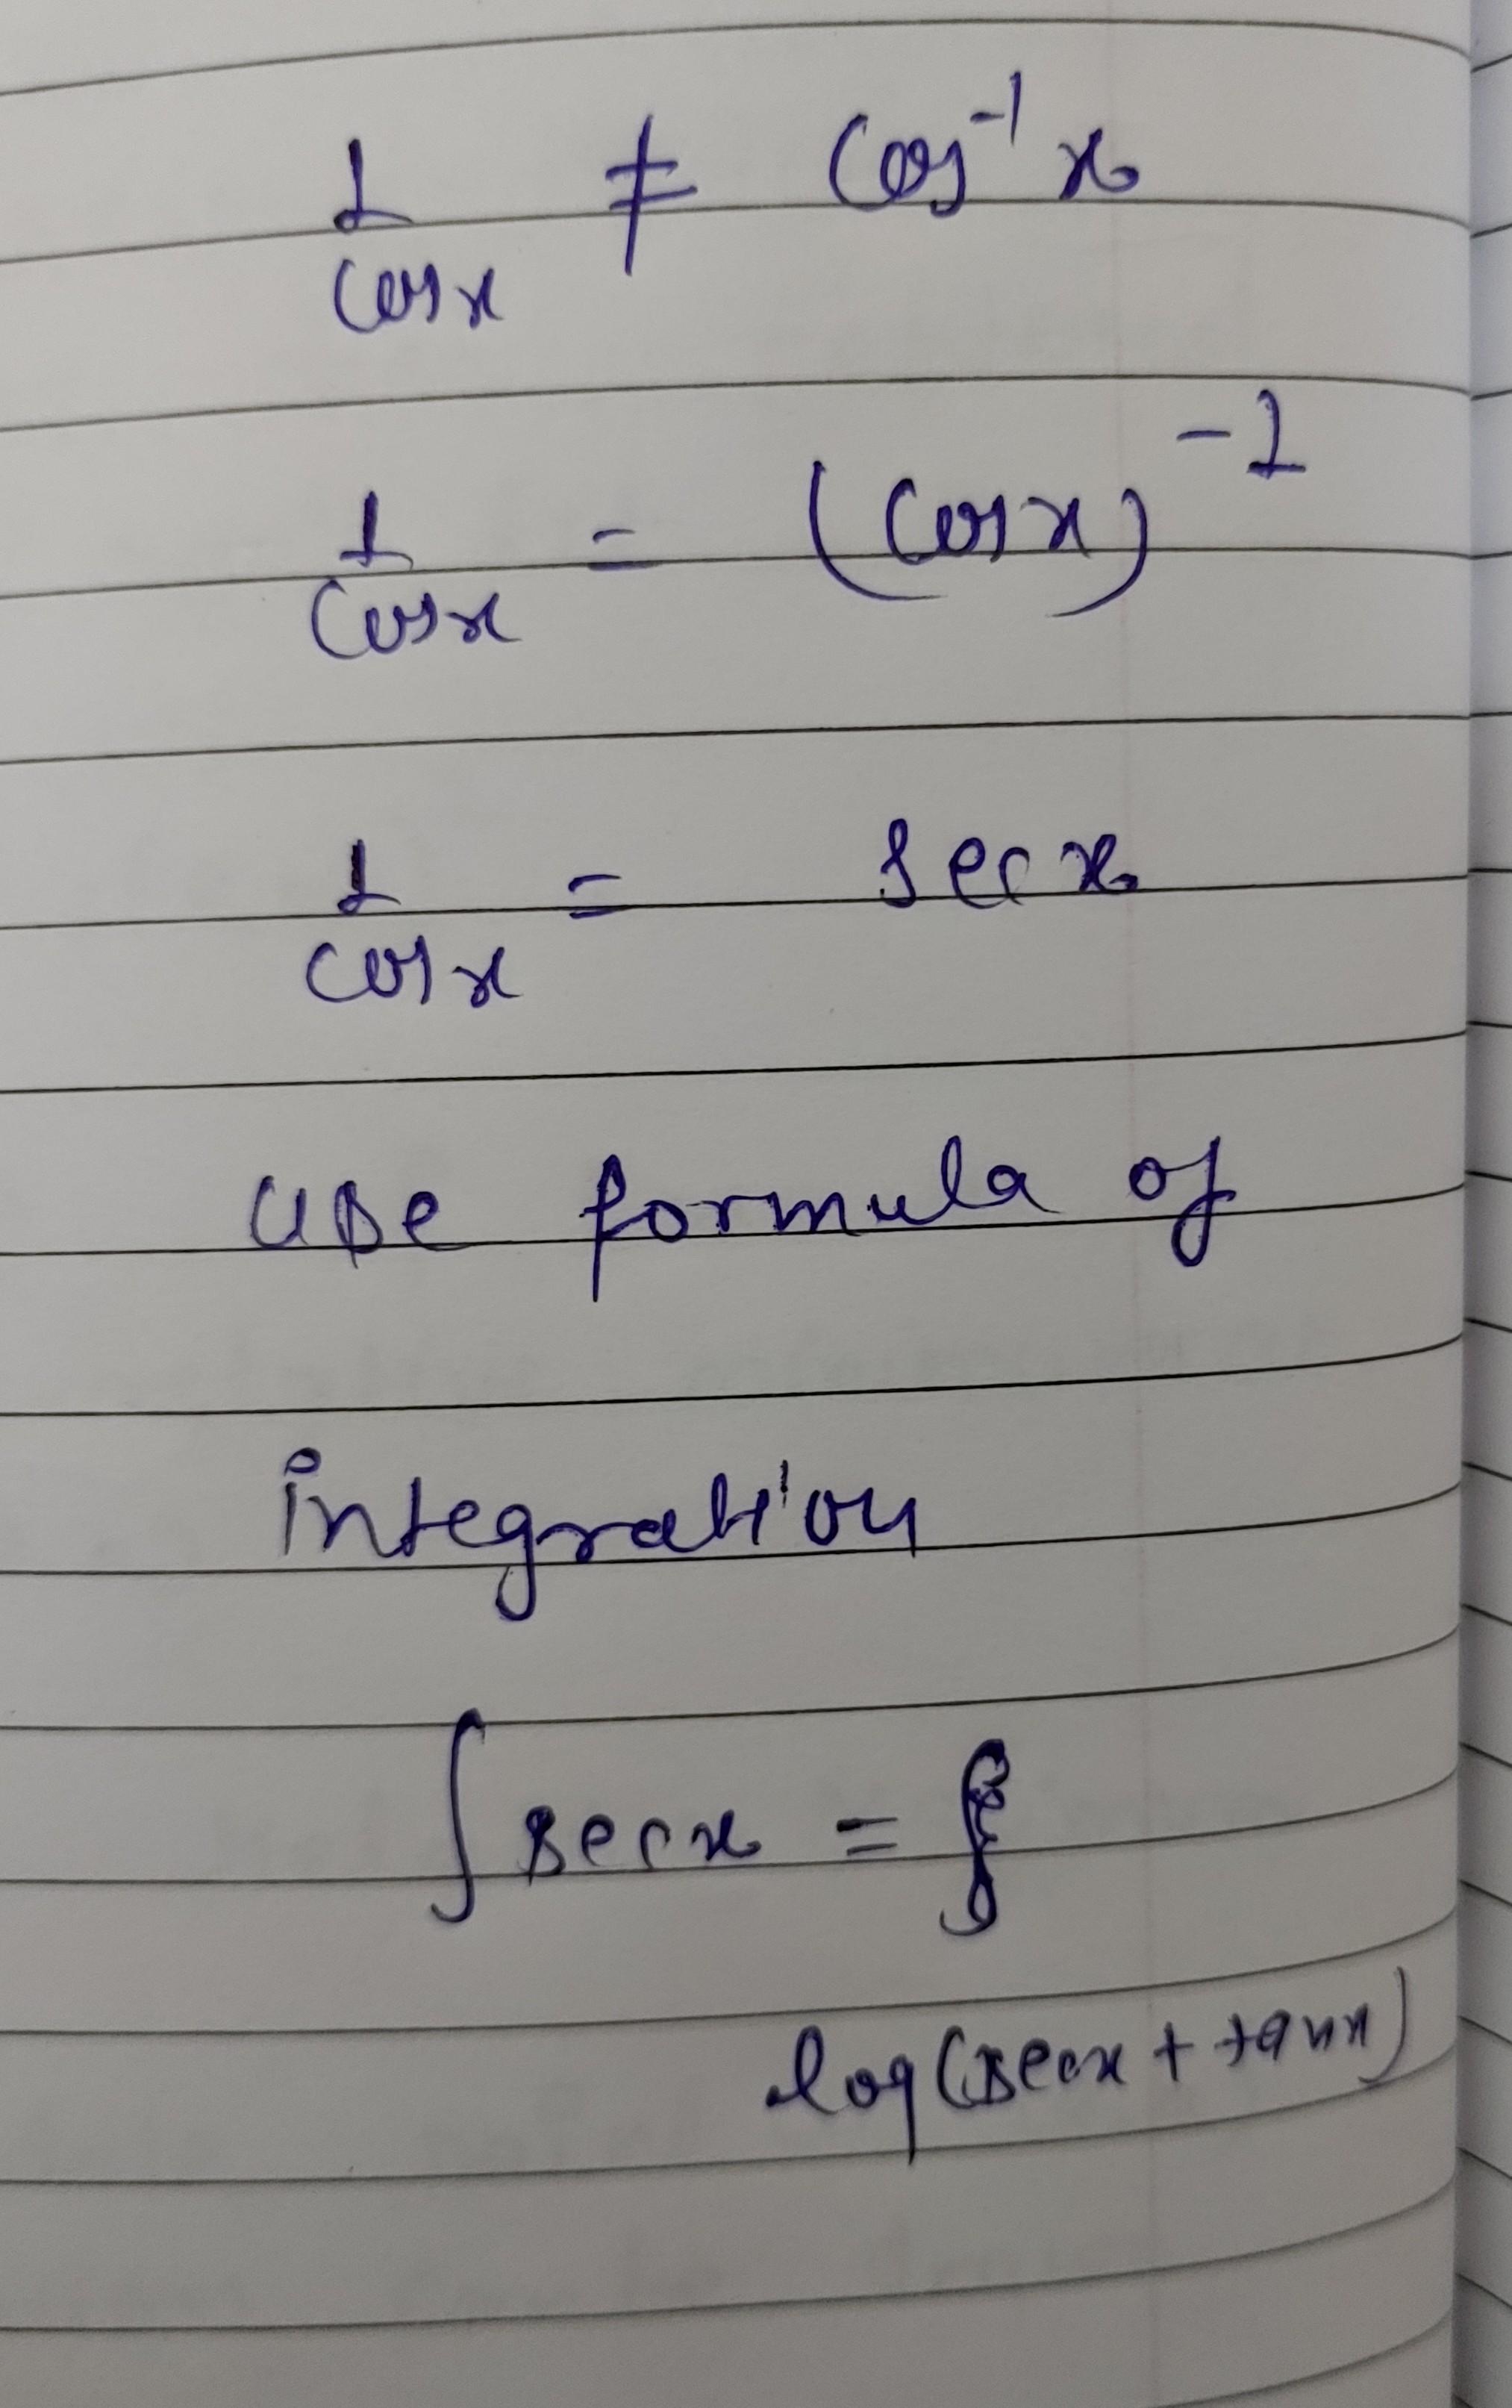 1/cosx ≠ cos⁻¹ x
1/cosx = (cosx)⁻¹
1/cosx = sec x
use formula of
integration
∫ secx =
log(secx + tanx)